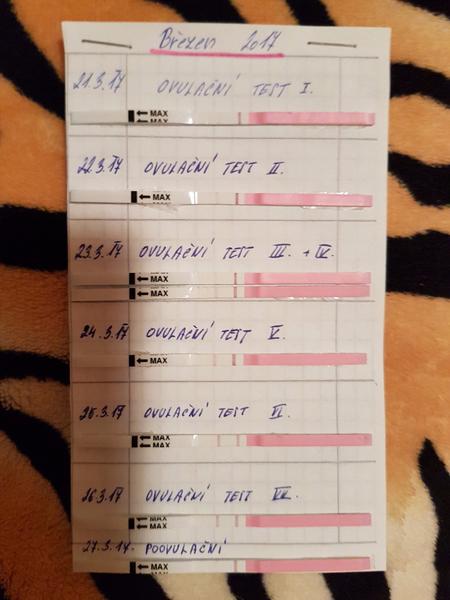 Březen 2017
21.3.17 OVULAČNÍ TEST I.
← MAX
← MAX
22.3.17 OVULAČNÍ TEST II.
← MAX
23.3.17 OVULAČNÍ TEST III. + IV.
← MAX
← MAX
24.3.17 OVULAČNÍ TEST V.
← MAX
25.3.17 OVULAČNÍ TEST VI.
← MAX
← MAX
26.3.17 OVULAČNÍ TEST VII.
← MAX
← MAX
27.3.17. POOVULAČNÍ
← MAX